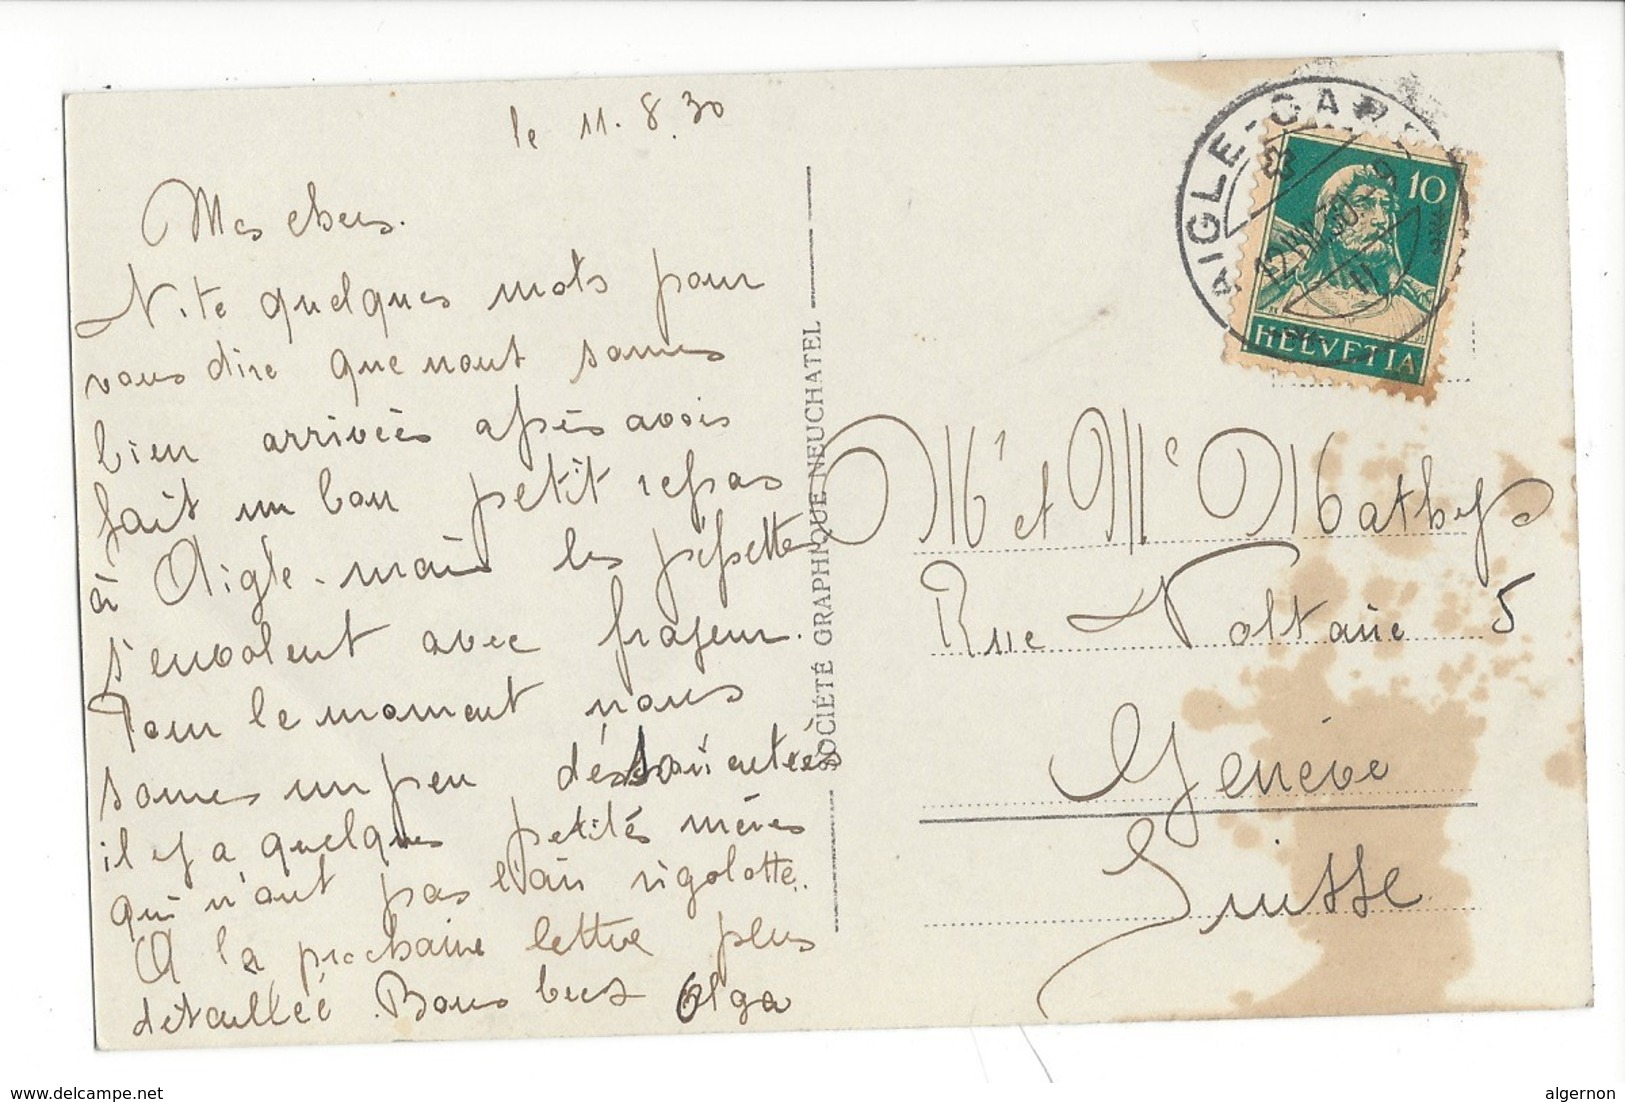 le 11.8.30
Mes chers.
Vite quelques mots pour
vous dire que nout somes
bien arrivées après avois
fait un bon petit repas
à Aigle. mais les pépettes
s'envolent avec frajeur.
Pour le moment nous
somes un peu désorientées
il y a quelques petités mères
qui n'ont pas l'air rigolotte..
A la prochaine lettre plus
détaillée. Bons becs Olga
SOCIÉTÉ GRAPHIQUE NEUCHATEL
AIGLE-GARE
12.VIII.30
10
HELVETIA
Mr et Me Mathys
Rue Voltaire 5
Genève
Suisse
www.delcampe.net
algernon